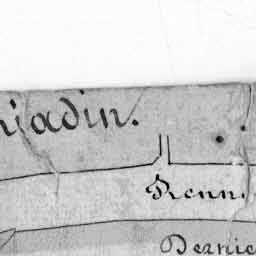 iadin.
Renn.
Dernie